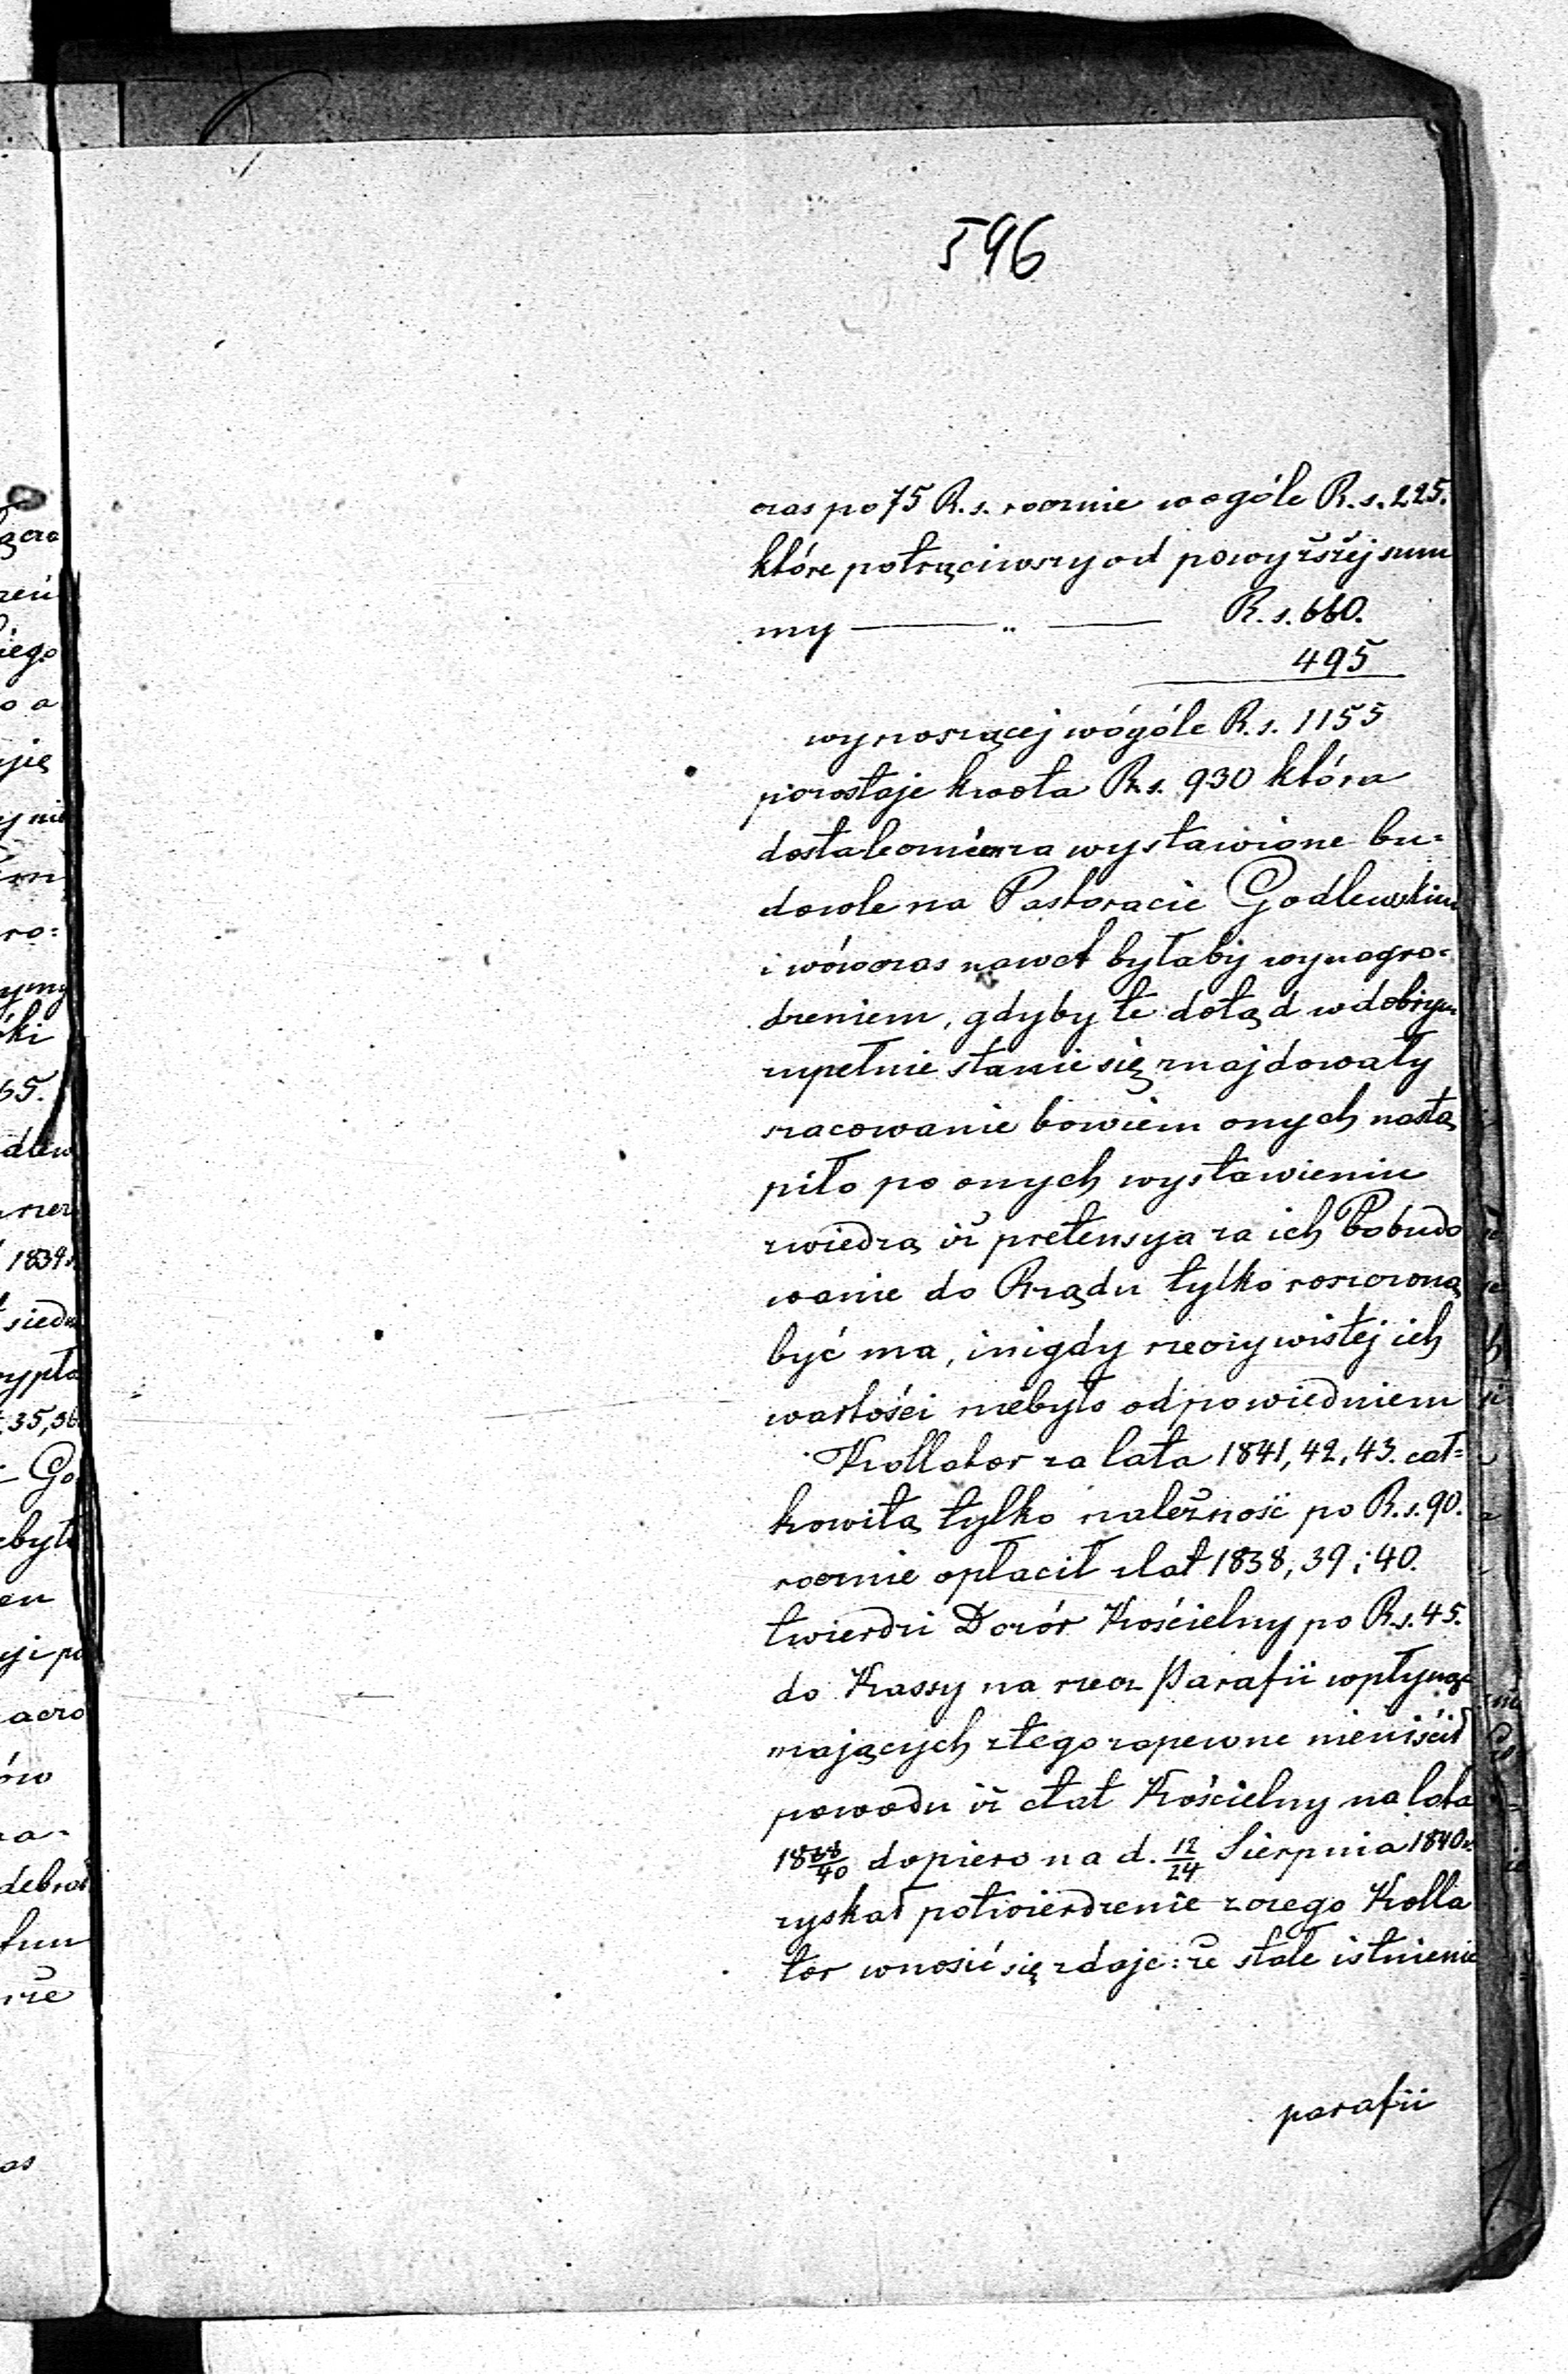 596
czas po 75 R. s. rocznie wogóle R. s. 225.
które potrąciwszy od powyższéj sum
my ——— „ ——— R. s. 660.
495
wynoszącej wógóle R. s. 1155
pozostaje kwota R. s. 930 która
dostatecznie za wystawione bu=
dowle na Pastoracie Godlewskim
i wówczas nawet byłaby wynagro=
dzeniem, gdyby te dotąd w dobrym
zupełnie stanie się znajdowały
szacowanie bowiem onych nastą
piło po onych wystawieniu
zwiedzą iż pretensya za ich Pobudo
wanie do Rządu tylko roszczoną
być ma, i nigdy rzeczywistéj ich
wartości niebyło odpowiedniem
Kollator za lata 1841, 42, 43. cał=
kowitą tylko należność po R. s. 90.
rocznie opłacił z lat 1838, 39 i 40.
twierdzi Dozór Kościelny po R. s. 45.
do Kassy na rzecz Parafii wpłynąć
mających z tego zapewne nieuiścił
powodu iż etat Kościelny na lata
1838/40 dopiero na d. 12/24 Sierpnia 1840 r.
zyskał potwierdzenie z czego Kolla
tor wnosić się zdaje: że stałe istnienie
parafii